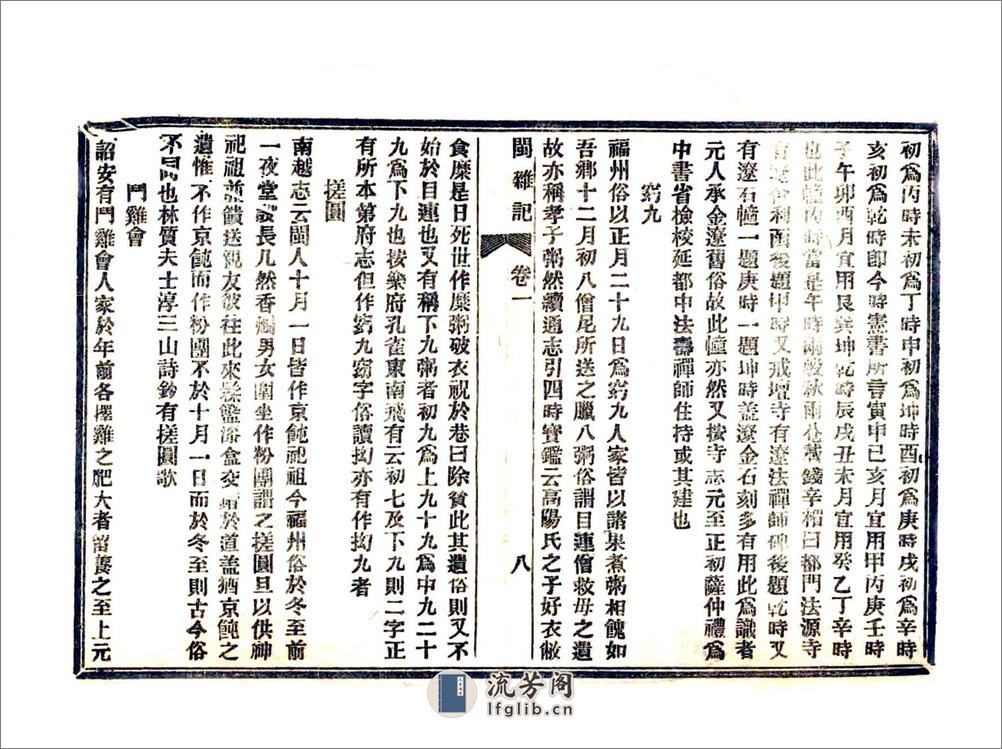 初爲丙時未初爲丁時申初爲坤時酉初爲庚時戌初爲辛時
亥初爲乾時卽今時憲書所言寅申巳亥月宜用甲丙庚壬時
子午卯酉月宜用艮巽坤乾時辰戌丑未月宜用癸乙丁辛時
也此幢丙時當是午時兩般秋雨盦載錢辛楣曰都門法源寺
有遼舍利函後題甲時又戒壇寺有遼法禪師碑後題乾時又
有遼石幢一題庚時一題坤時蓋遼金石刻多有用此爲識者
元人承金遼舊俗故此幢亦然又按寺志元至正初薩仲禮爲
中書省檢校延都中法壽禪師住持或其建也
窮九
福州俗以正月二十九日爲窮九人家皆以諸果煮粥相餽如
吾鄉十二月初八僧尼所送之臘八粥俗謂目連僧救母之遺
故亦稱孝子粥然續通志引四時寶鑑云高陽氏之子好衣敝
閩雜記 卷一 八
食糜是日死世作糜粥破衣祝於巷曰除貧此其遺俗則又不
始於目連也又有稱下九粥者初九爲上九十九爲中九二十
九爲下九也按樂府孔雀東南飛有云初七及下九則二字正
有所本第府志但作窮九窮字俗讀拗亦有作拗九者
搓圓
南越志云閩人十月一日皆作京飩祀祖今福州俗於冬至前
一夜堂設長几然香燭男女圍坐作粉團謂之搓圓旦以供神
祀祖並饋送親友彼往此來髹籃漆盒交錯於道蓋猶京飩之
遺惟不作京飩而作粉團不於十月一日而於冬至則古今俗
不同也林質夫士淳三山詩鈔有搓圓歌
鬥雞會
詔安有鬥雞會人家於年前各擇雞之肥大者留養之至上元
流芳阁
lfglib.cn